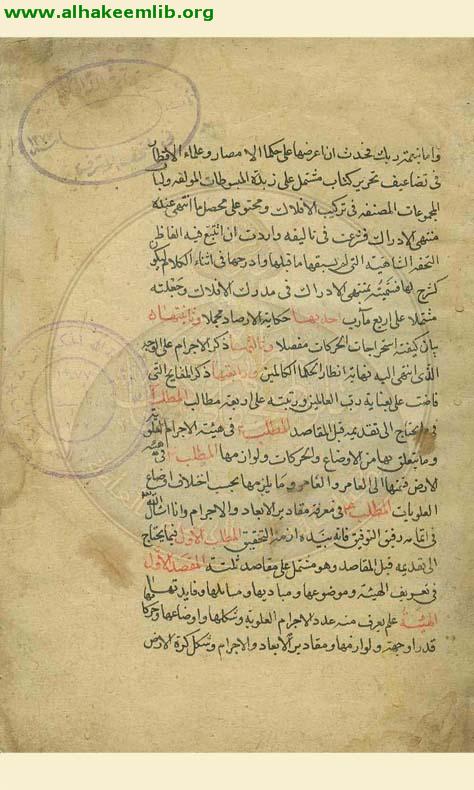 www.alhakeemlib.org
واما بنعمة ربك فحدث ان اعرضها على حكماء الامصار وعلماء الاقطار
فى تضاعيف تحرير كتاب مشتمل على زبدة المبسوطات المولفه ولباب
المجموعات المصنفه فى تركيب الافلاك ومحتو على محصل ما انتهى عنده
منتهى الادراك فشرعت فى تاليفه واردت ان اتبع فيه الفاظ
التحفه الشاهيه التى لم يسبقها ما قبلها وادرجها فى اثناء الكلام ليكون
كشرح لها فسميته بمنتهى الادراك فى مدرك الافلاك وجعلته
مشتملا على اربع مآرب احديها حكاية الارصاد مجملا وثانيتها
بيان كيفية استخراجات الحركات مفصلا وثالثها ذكر الاجرام على الوجه
الذى انتهى اليه نهاية انظار الحكماء الكاملين ورابعها ذكر المفاتيح التى
فاضت على بعناية رب العالمين ورتبته على اربعة مطالب المطلب
فيما يحتاج الى تقديمه قبل المقاصد المطلب فى هيئة الاجرام العلوية
وما يتعلق بها من الاوضاع والحركات ولوازمها المطلب فى هيئة
الارض قسمتها الى العامر والغامر وما يلزمها بحسب اختلاف اوضاع
العلويات المطلب فى معرفة مقادير الابعاد والاجرام وانا اسأل الله
فى اتمامه رفيق التوفيق فانه بيده ازمة التحقيق المطلب الاول فيما يحتاج
الى تقديمه قبل المقاصد وهو مشتمل على مقاصد ثلثة المقصد الاول
فى تعريف الهيئة وموضوعها ومباديها ومسائلها وفايدتها
الهيئة علم يعرف منه عدد الاجرام العلوية وشكلها واوضاعها وحركاتها
قدرا وجهة ولوازمها ومقادير الابعاد والاجرام وشكل كرة الارض